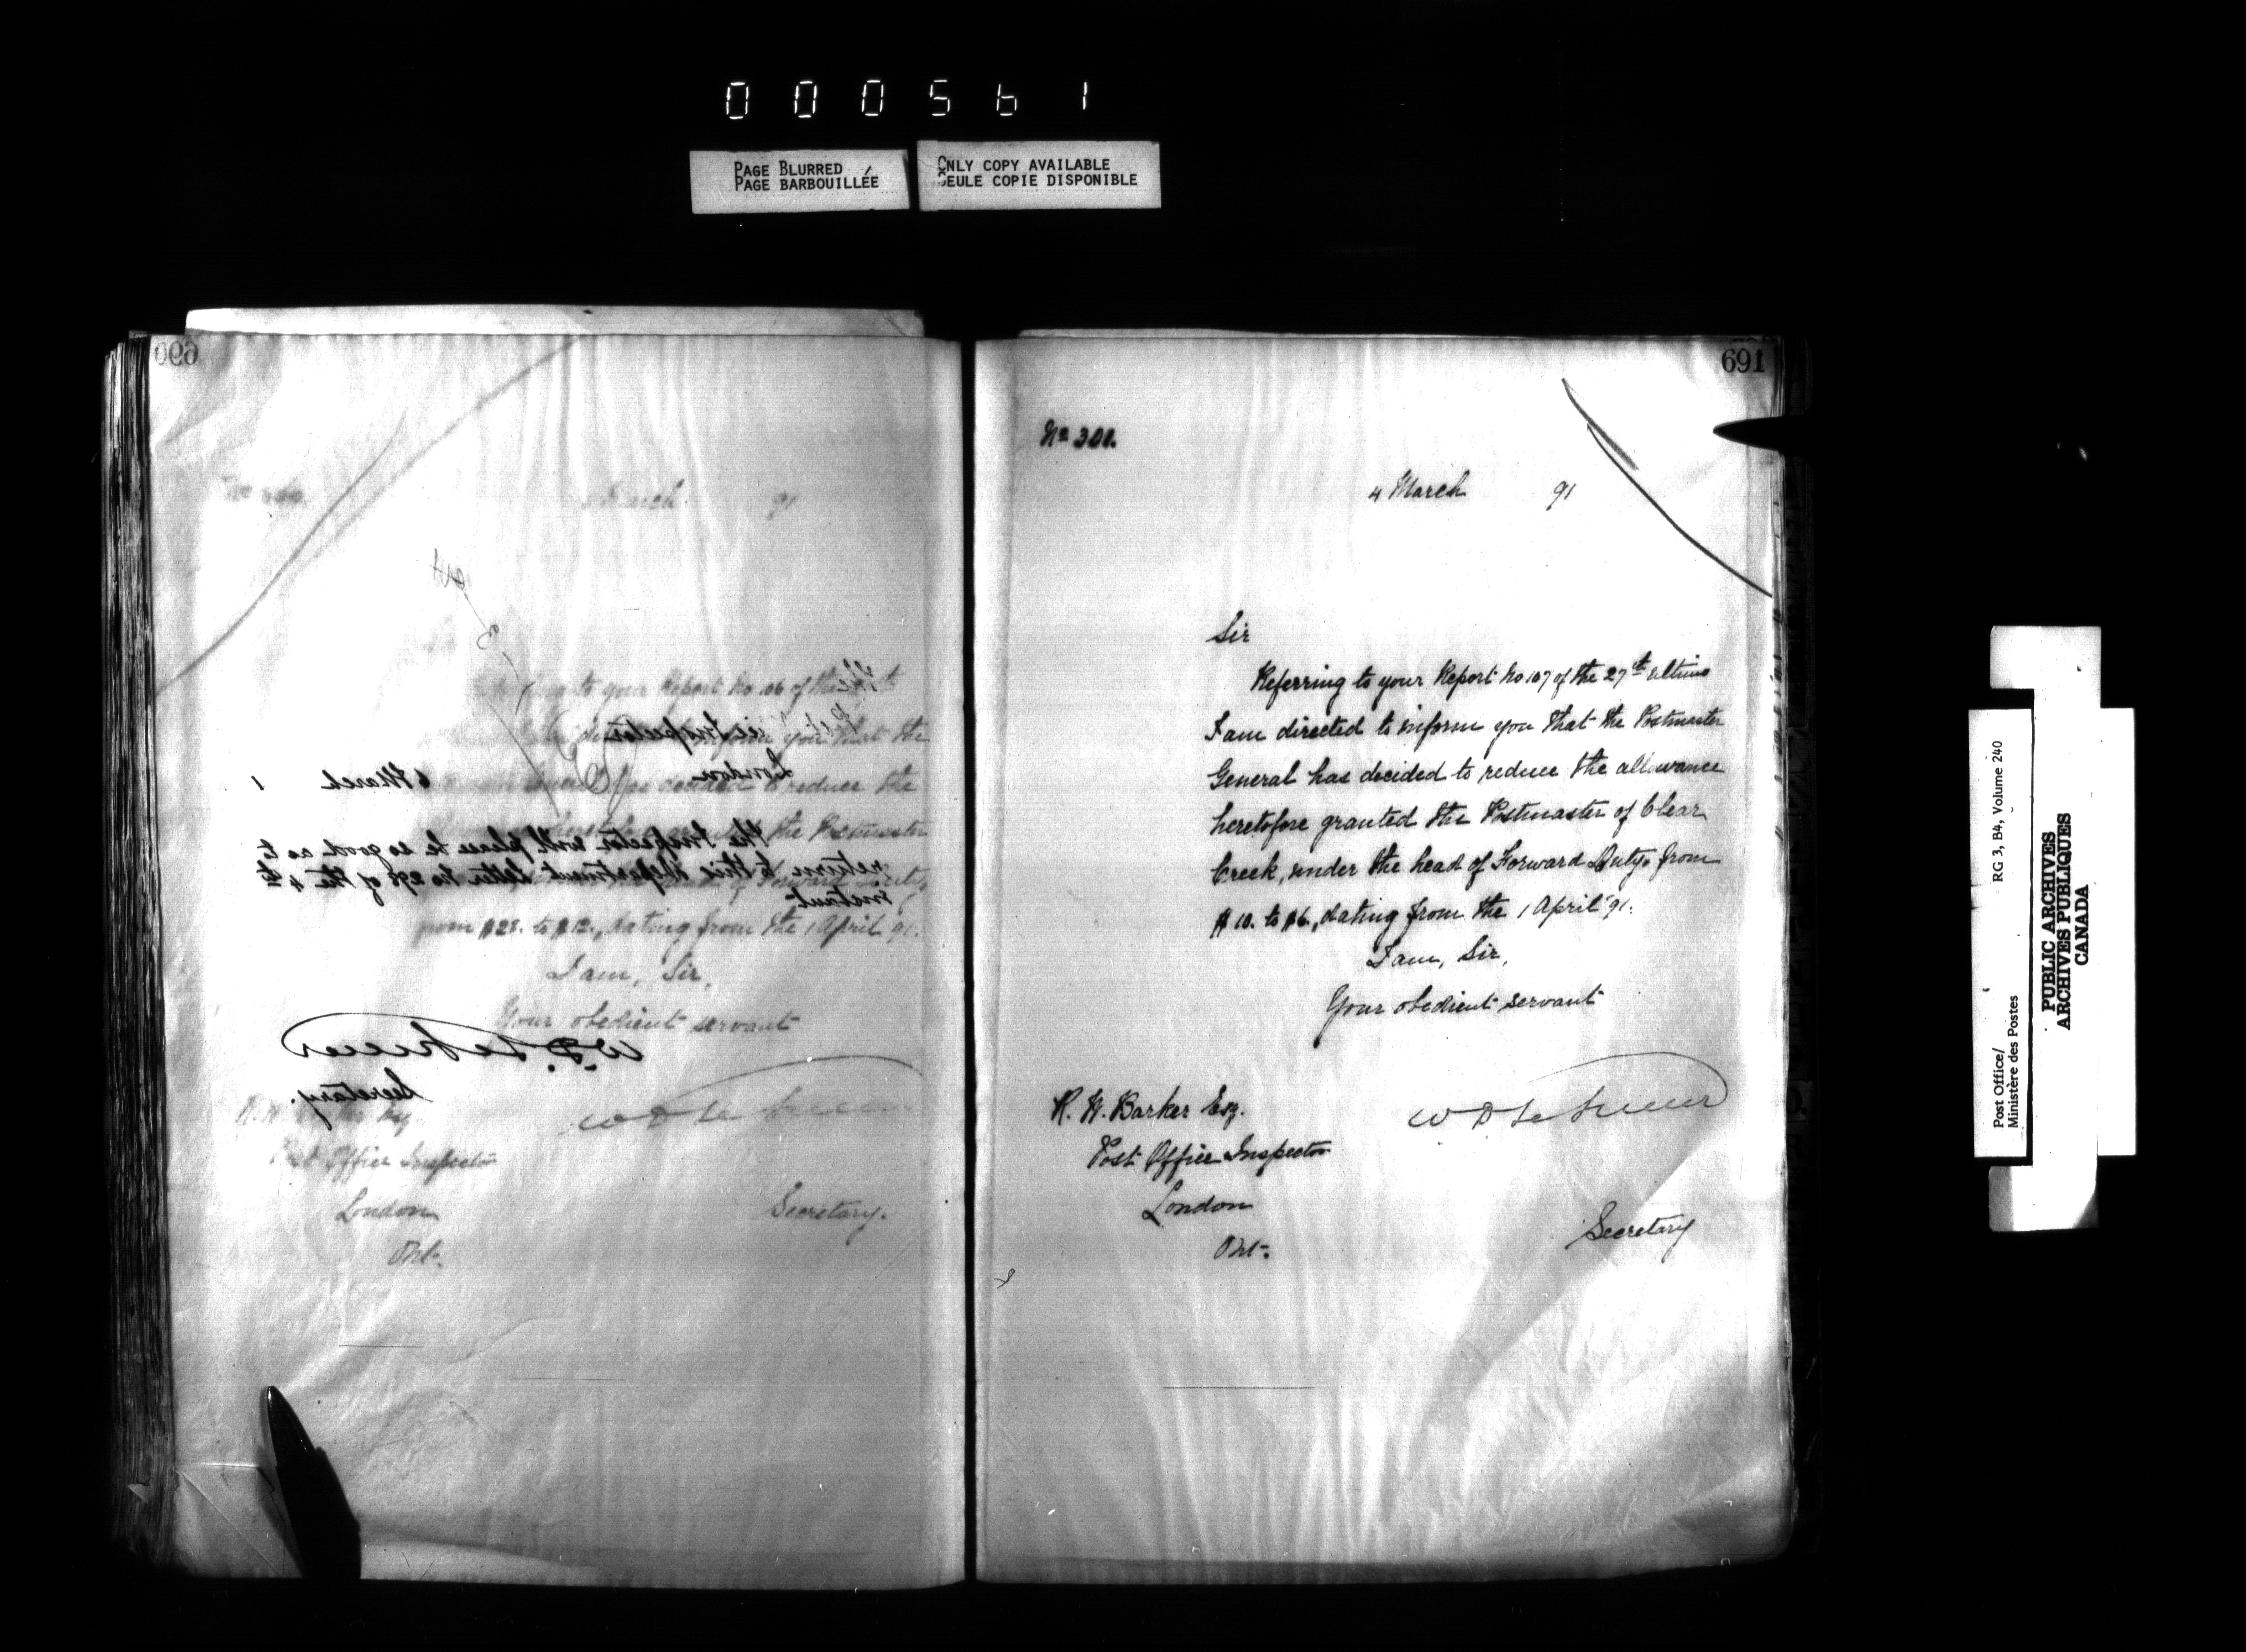 000561
PAGE BLURRED
PAGE BARBOUILLÉE
ONLY COPY AVAILABLE
SEULE COPIE DISPONIBLE
690
March 91
to your Report No 106 of the
inform you that the
decided to reduce the
the Postmaster
from $28. to $12., dating from the 1 April 91.
I am, Sir,
Your obedient servant
Post Office Inspector
London
Ont.
Secretary.
Inspector
London
6 March 1
The Inspector will please be so good as to
return to this department letter No 298 of the 4th
instant
W. D. LeSueur
Secretary.
691
No 301.
4 March 91
Sir
Referring to your Report No 107 of the 27th ultimo
I am directed to inform you that the Postmaster
General has decided to reduce the allowance
heretofore granted the Postmaster of Clear
Creek, under the head of Forward Duty, from
$10. to $6., dating from the 1 April 91.
I am, Sir,
Your obedient servant
R. W. Barker Esq.
Post Office Inspector
London
Ont.
W D LeSueur
Secretary
Post Office/
Ministère des Postes
RG 3, B4, Volume 240
PUBLIC ARCHIVES
ARCHIVES PUBLIQUES
CANADA